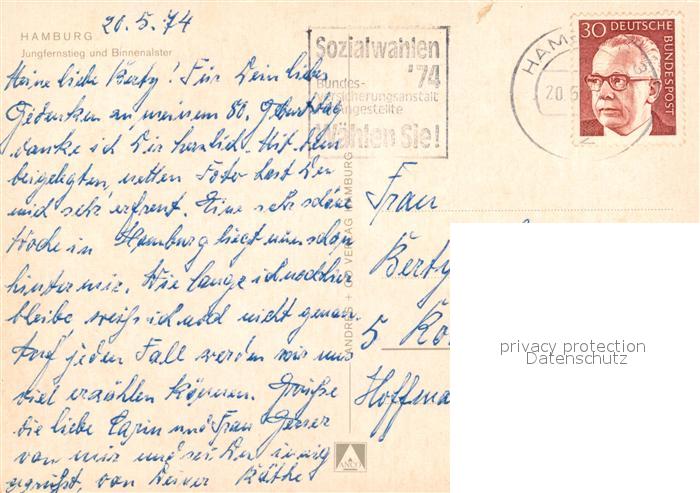 20.5.74
HAMBURG
Jungfernstieg und Binnenalster
Meine liebe Berty! Für Dein liebes
Gedenken zu meinem 80. Geburtstag
danke ich Dir herzlich. Mit dem
beigelegten, netten Foto hast Du
mich sehr erfreut. Eine sehr schöne
Woche in Hamburg liegt nun schon
hinter mir. Wie lange ich noch hier
bleibe, weiß ich noch nicht genau.
Auf jeden Fall werden wir uns
viel erzählen können. Grüße
die liebe Carin und Frau
von mir und sei Du innig
gegrüßt, von Deiner Käthe
Sozialwahlen
'74
Bundes-
versicherungsanstalt
Angestellte
Wählen Sie!
HAM
20.5
30 DEUTSCHE
BUNDESPOST
Frau
Berty
5 Kö
Hoffman
ANDRES + CO VERLAG HAMBURG
ANCO
privacy protection
Datenschutz